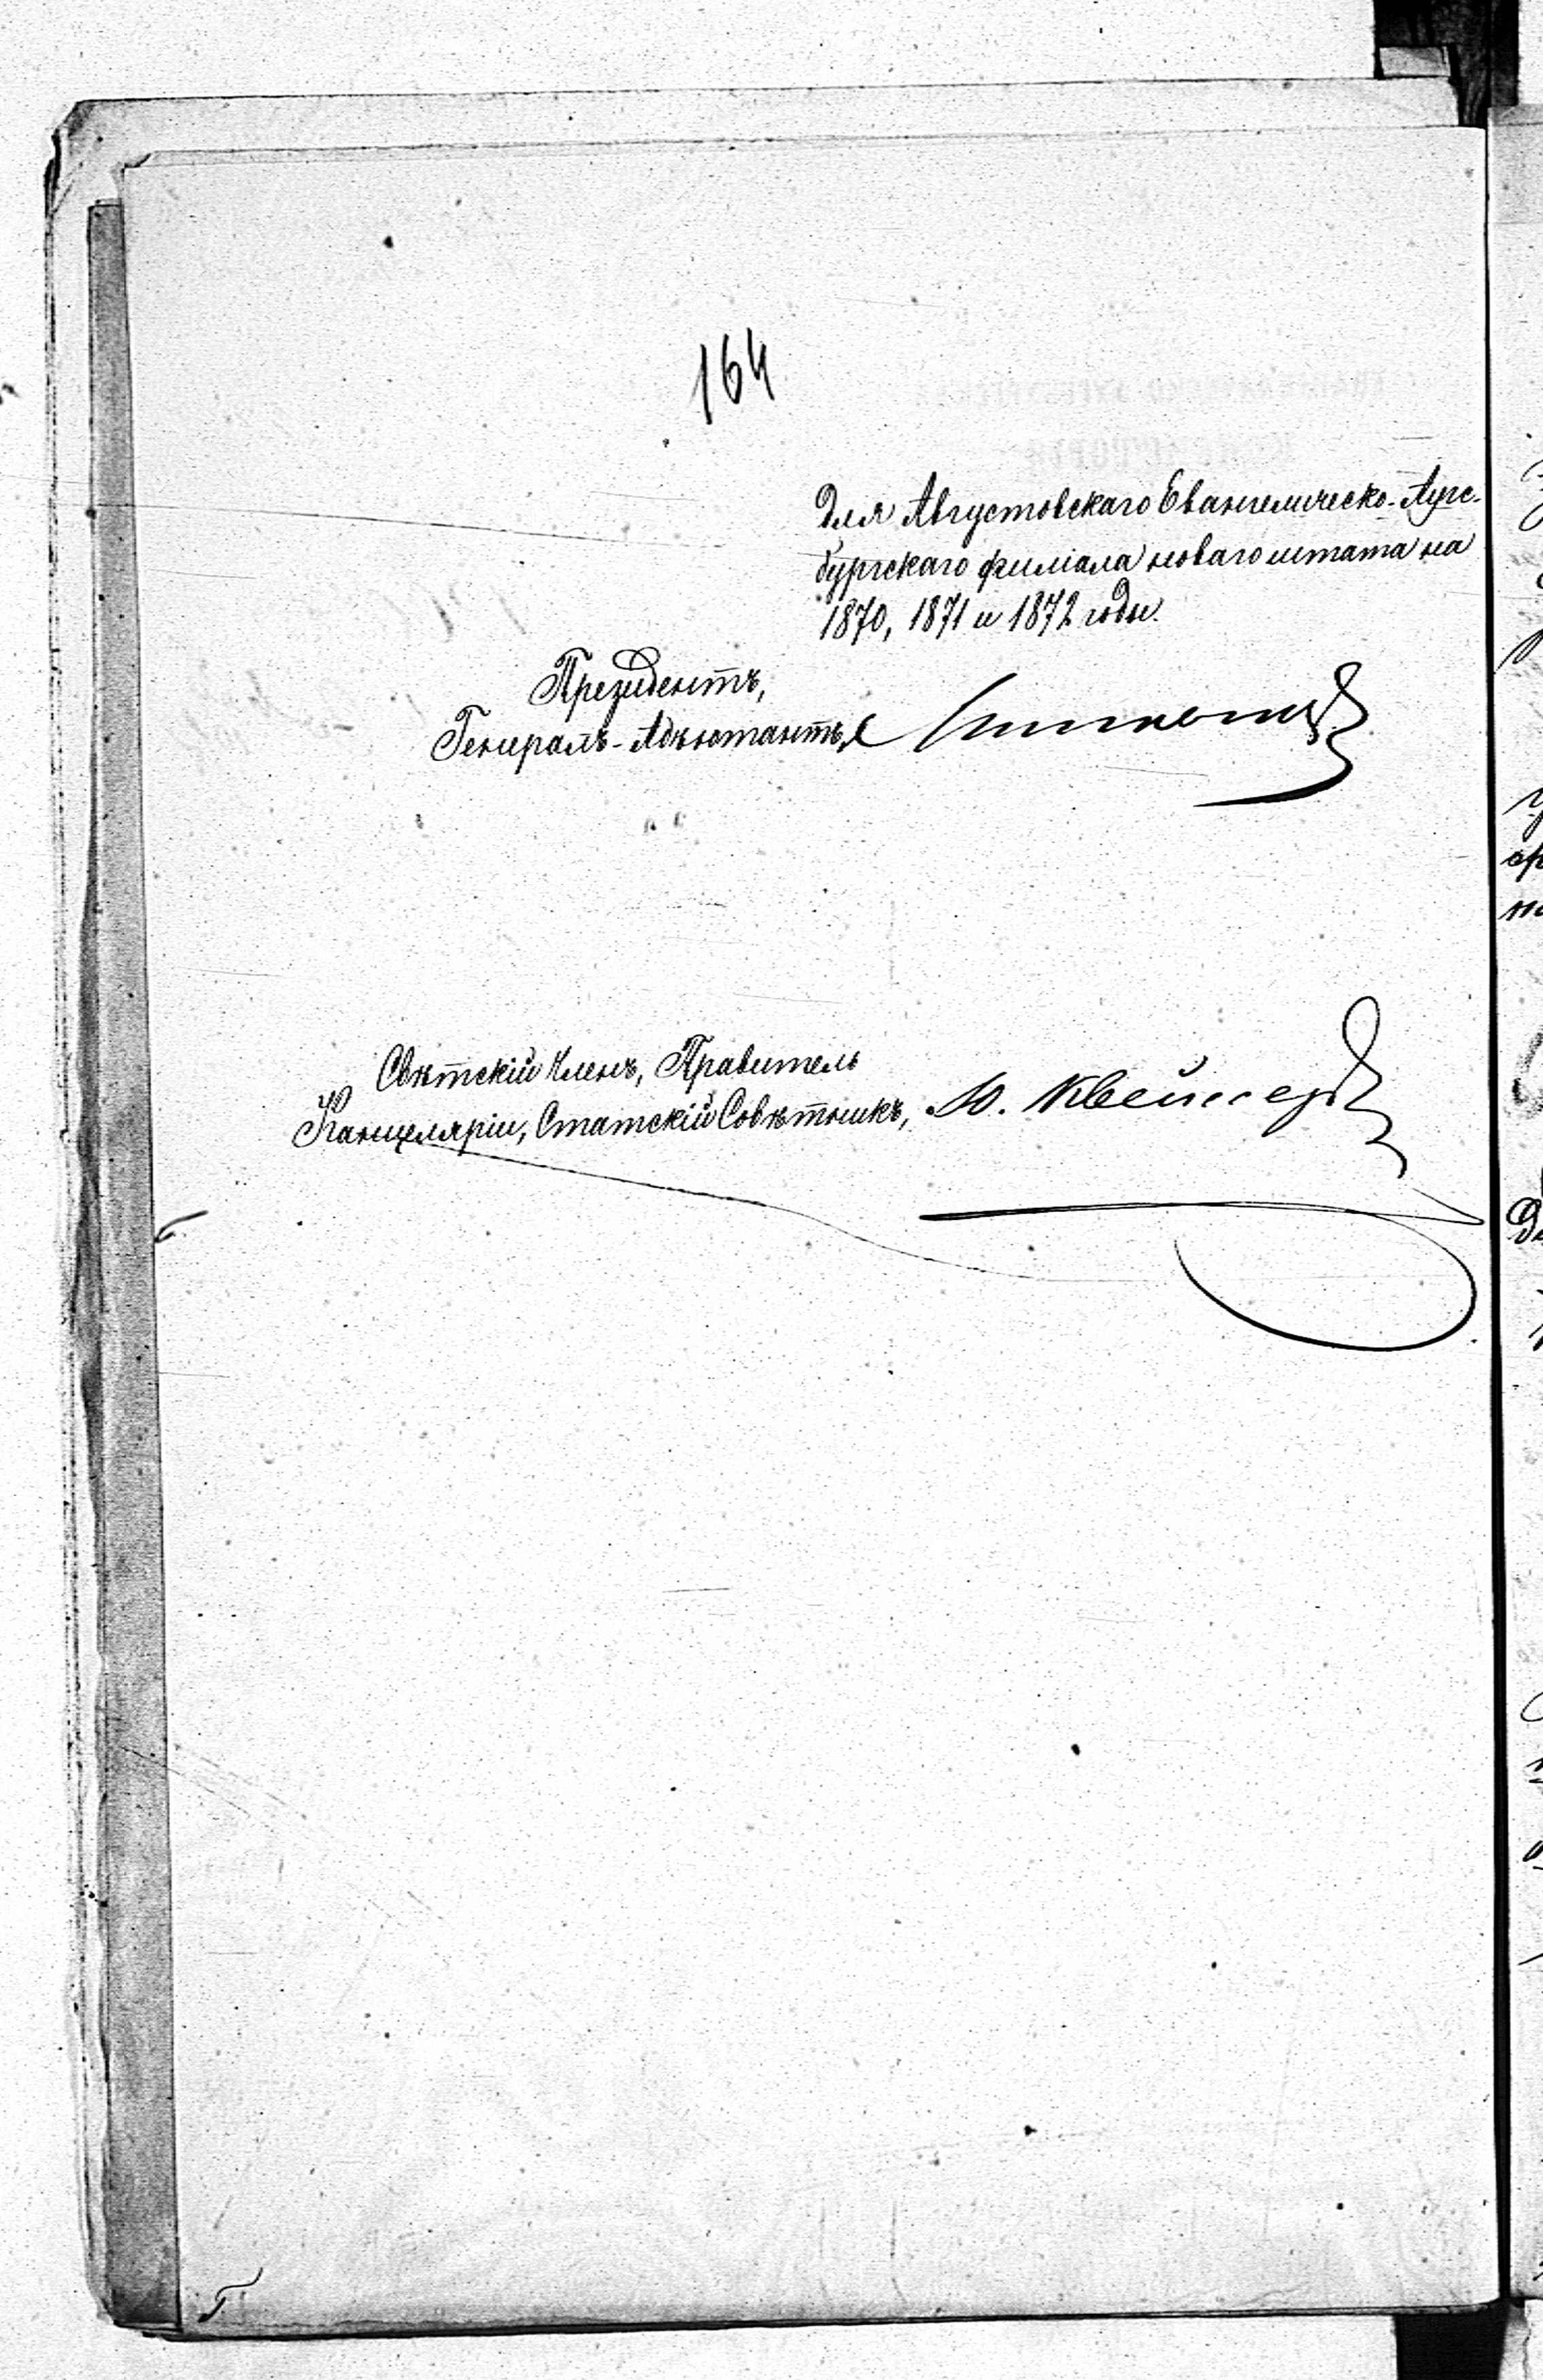 164
для Августовскаго Евангелическо-Аугс-
бургскаго филіала новаго штата на
1870, 1871 и 1872 годы.
Президентъ,
Генералъ-Адъютантъ,
Свѣтскій Членъ, Правитель
Канцеляріи, Статскій Совѣтникъ, Ю.